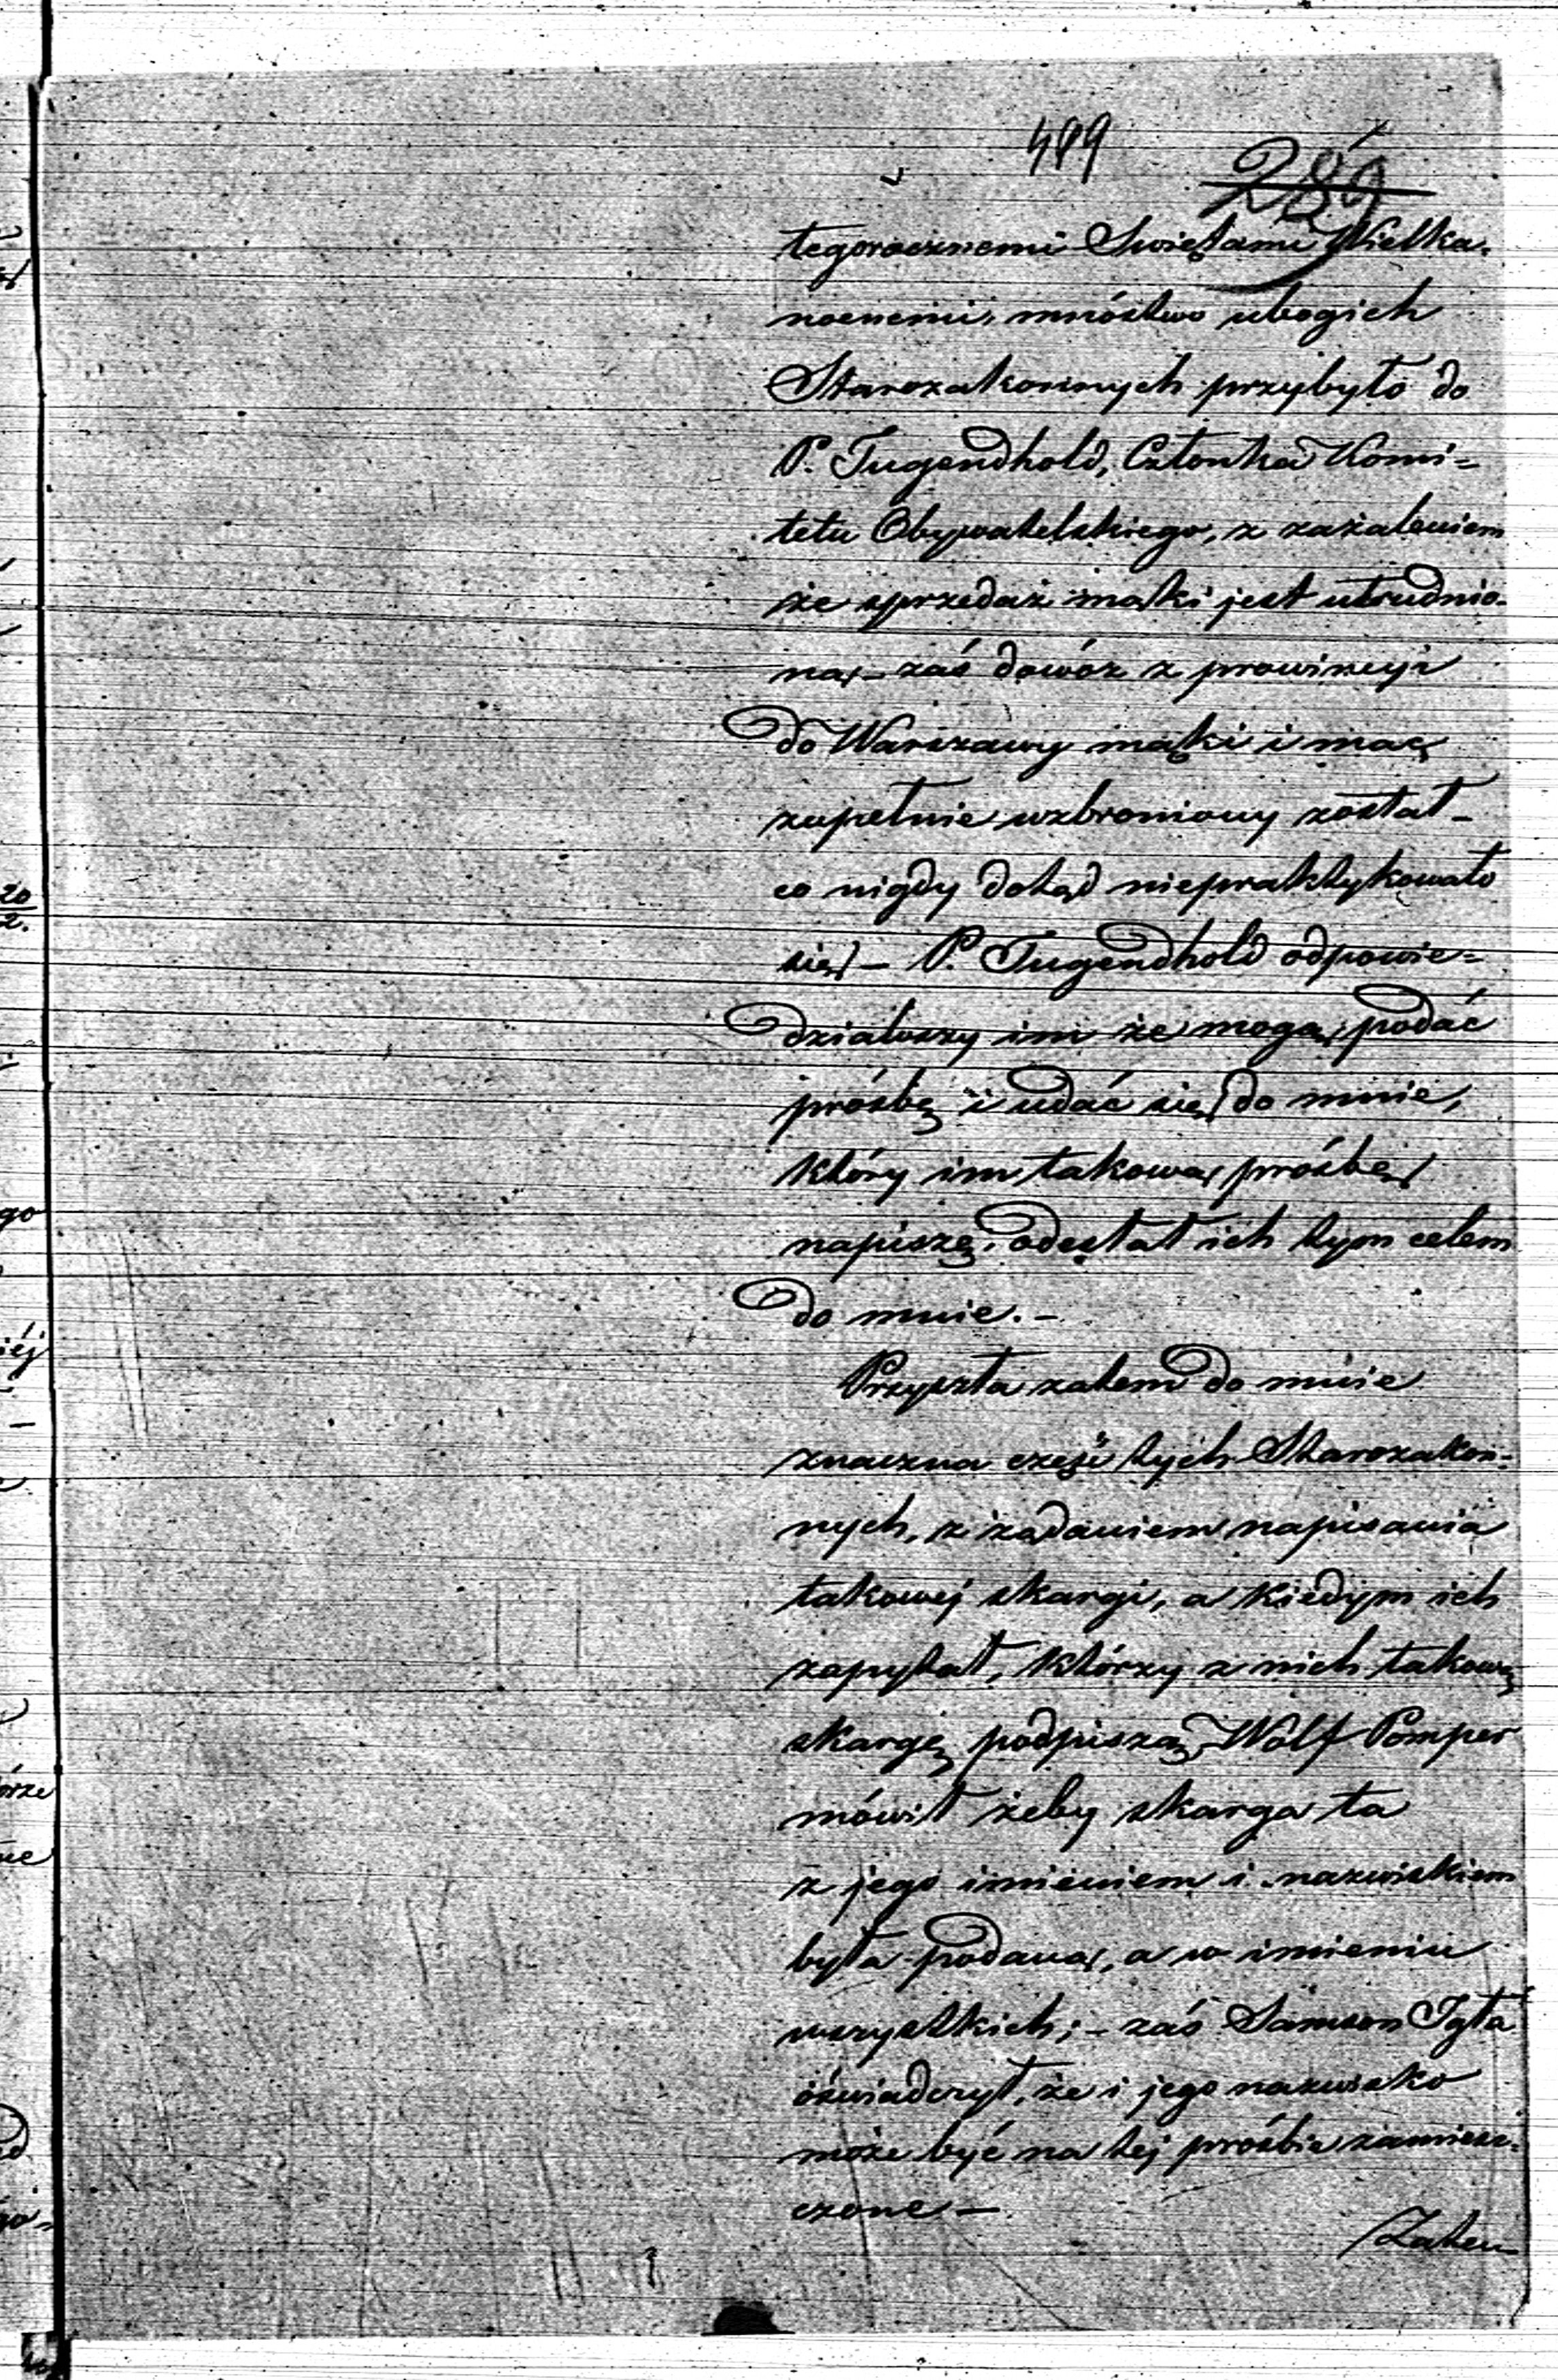 489
289
tegorocznemi Świętami Wielka-
nocnemi, mnóstwo ubogich
Starozakonnych przybyło do
P. Tugendhold, Członka Komi=
tetu Obywatelskiego, z zażaleniem
że sprzedaż mąki jest utrudnio-
ną, – zaś dowóz z prowincyi
do Warszawy mąki i macy
zupełnie wzbroniony został –
co nigdy dotąd niepraktykowało
się – P. Tugendhold odpowie=
dziawszy im że mogą podać
prośbę i udać się do mnie,
który im takową prośbę
napiszę, odesłał ich tym celem
do mnie. –
Przyszła zatem do mnie
znaczna część tych Starozakon=
nych, z żądaniem napisania
takowej skargi, a kiedym ich
zapytał, którzy z nich takową
skargę podpiszą, Wolf Pomper
mówił żeby skarga ta
z jego imieniem i nazwiskiem
była podana, a w imieniu
wszystkich; – zaś Samson Igła
oświadczył, że i jego nazwisko
może być na tej prośbie zamiesz-
czone –
Zatem